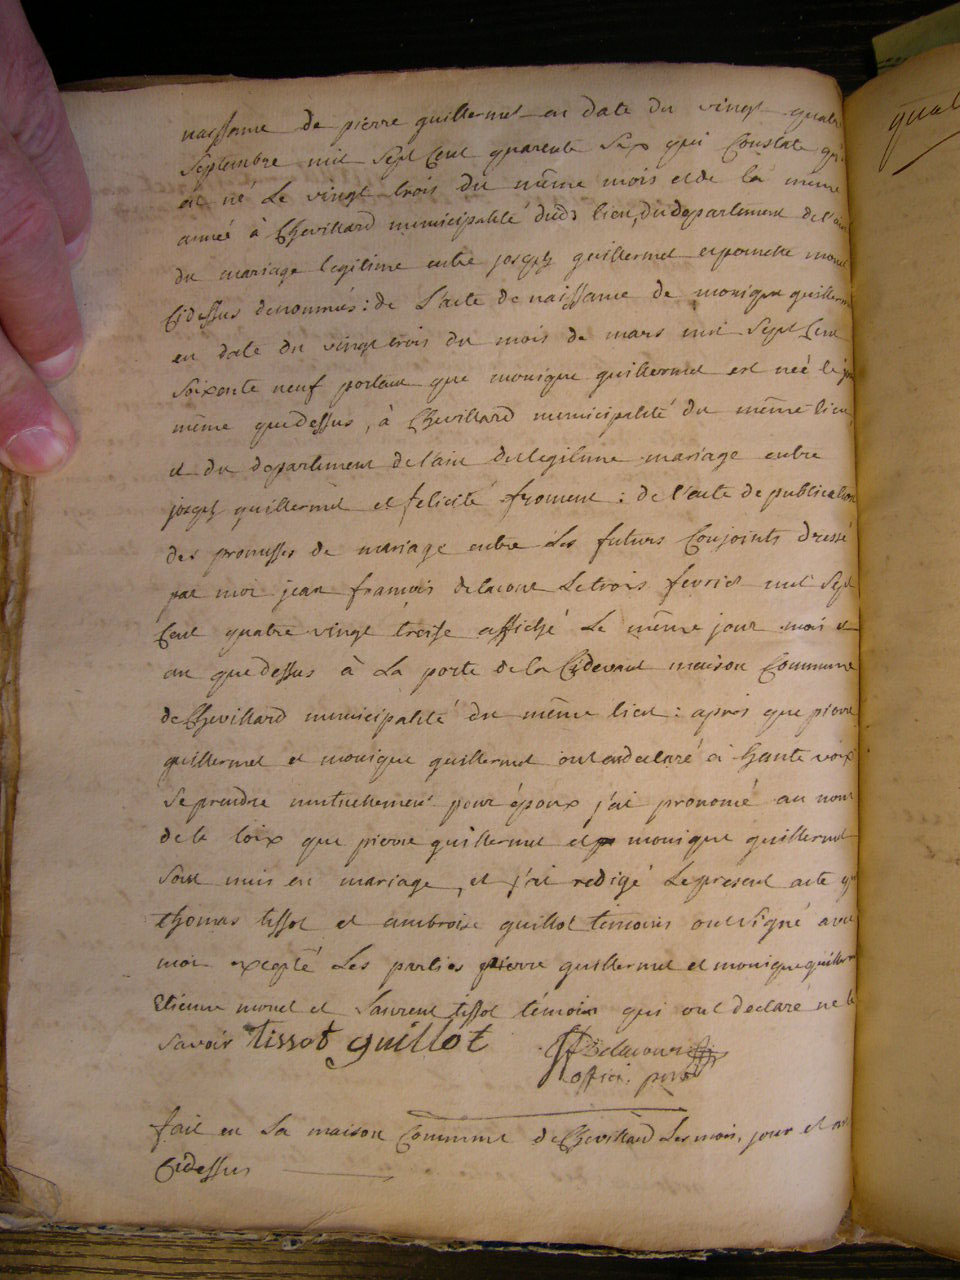 naissance de pierre guillermet en date du vingt quatre
septembre mil sept Cent quarente six qui Constate qu'il
est né le vingt trois du même mois et de la même
année à Chevillard municipalité dudt lieu, du departement de l'ain
du mariage legitime entre joseph guillermet et pernette monet
Cidessus denommés : de l'acte de naissance de monique guillermet
en date du vingt trois du mois de mars mil sept Cent
soixente neuf portant que monique guillermet est neé le jour
même quedessus, à Chevillard municipalité du même lieu
et du departement de l'ain du legitime mariage entre
joseph guillermet et felicité froment : de l'acte de publication
des promesses de mariage entre les futurs Conjoints dressé
par moi jean francois delacour le trois fevrier mil sept
Cent quatre vingt treise affiché le même jour mois et
an que dessus à la porte de la Cidevant maison Commune
de Chevillard municipalité du même lieu : apres que pierre
guillermet et monique guillermet ont declaré à haute voix
se prendre mutuellement pour époux j'ai prononcé au nom
de la loix que pierre guillermet et monique guillermet
sont unis en mariage, et j'ai redigé le present acte que
thomas tissot et ambroise guillot temoins ont signé avec
moi excepté les parties pierre guillermet et monique guillermet
Etienne monet et laurent tissot témoin qui ont declaré ne le
savoir tissot guillot Delacour
offici. pub
fait en la maison Commune de Chevillard les mois, jour et an
Cidessus
qual